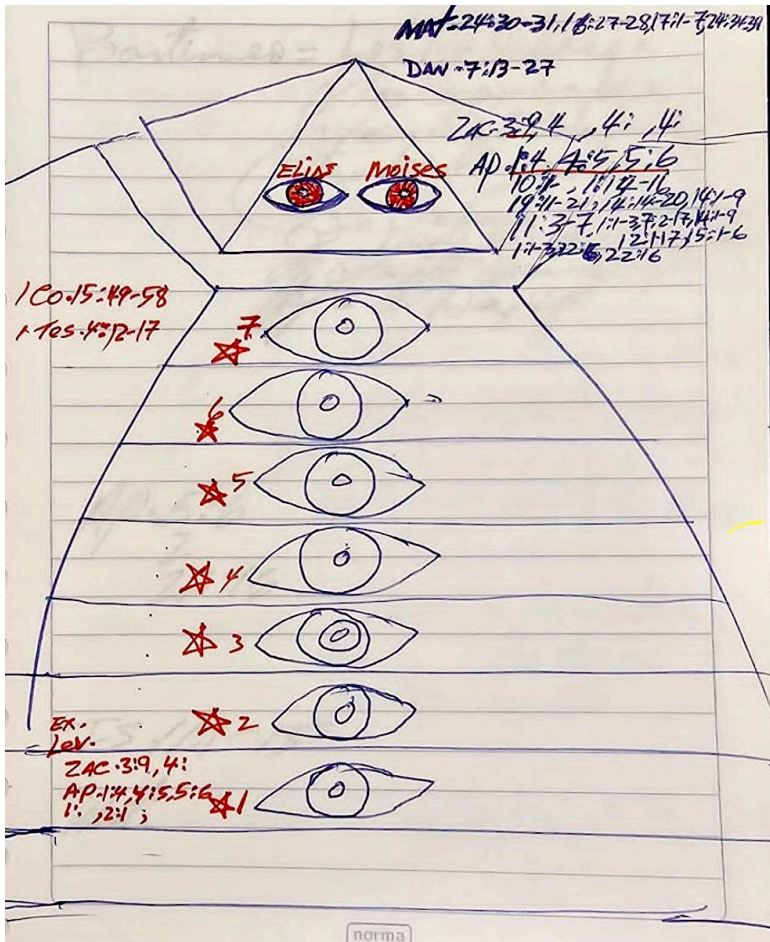 MAT-24:30-31, 16:27-28, 17:1-7, 24:34-39
DAN-7:13-27
ZAC-3:9, 4 , 4: , 4:
AP. 1:4, 4:5, 5:6
19:11-21, 14:14-20, 14:1-9
11:3-7, 1:1-3, 7:2-17, 14:1-9
12:1-17, 15:1-6
22:16
ELIAS MOISES
1 CO.15:49-58
1 Tes.4:12-17
7
6
5
4
3
2
EX.
Lev.
ZAC.3:9, 4:
AP.1:4, 4:5, 5:6
1: , 2:1 ;
1
norma